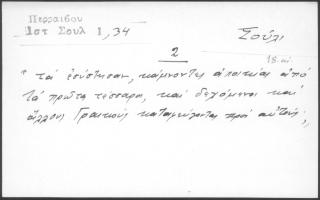 Περραιβου
Ιστ Σουλ 1,34
Σούλι
2
18. αι.
"τά ἐσύστησαν, κάμνοντες ἀποικίας ἀπό
τά πρῶτα τέσσαρα, καί δεχόμενοι καί
ἄλλους Γραικούς καταφεύγοντας πρός αὐτούς;,